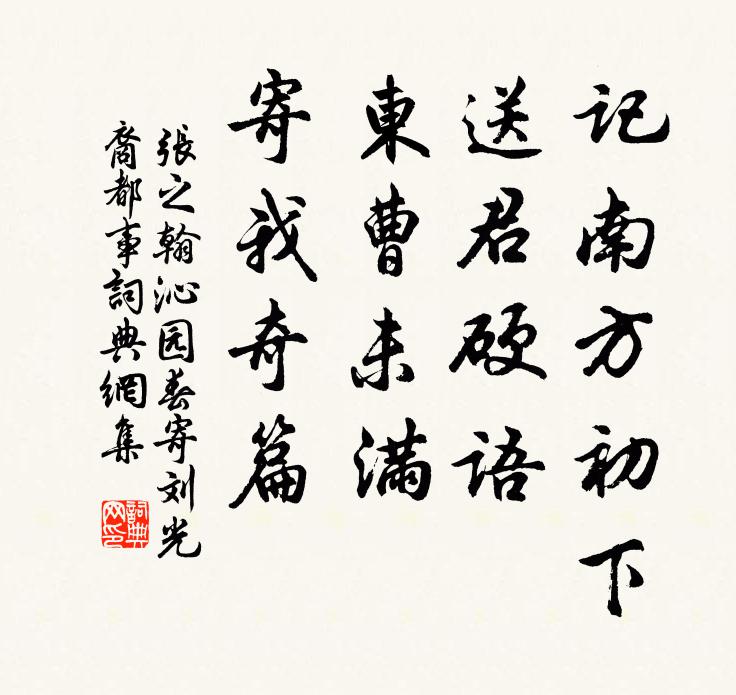 記南方初下
送君硬語
東曹未満
寄我奇篇
張之翰沁园春寄刘光
裔都事詞典網集
詞典网印